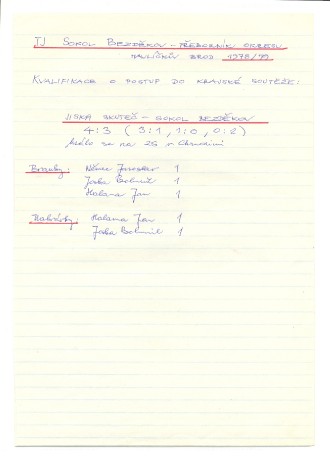 TJ SOKOL BEZDĚKOV - PŘEBORNÍK OKRESU
HAVLÍČKŮV BROD 1978/79
KVALIFIKACE O POSTUP DO KRAJSKÉ SOUTĚŽE:
JISKRA SKUTEČ - SOKOL BEZDĚKOV
4:3 ( 3:1, 1:0, 0:2)
hrálo se na ZS v Chrudimi
Branky: Němec Jaroslav 1
Joska Bohumil 1
Halama Jan 1
Nahrávky: Halama Jan 1
Joska Bohumil 1